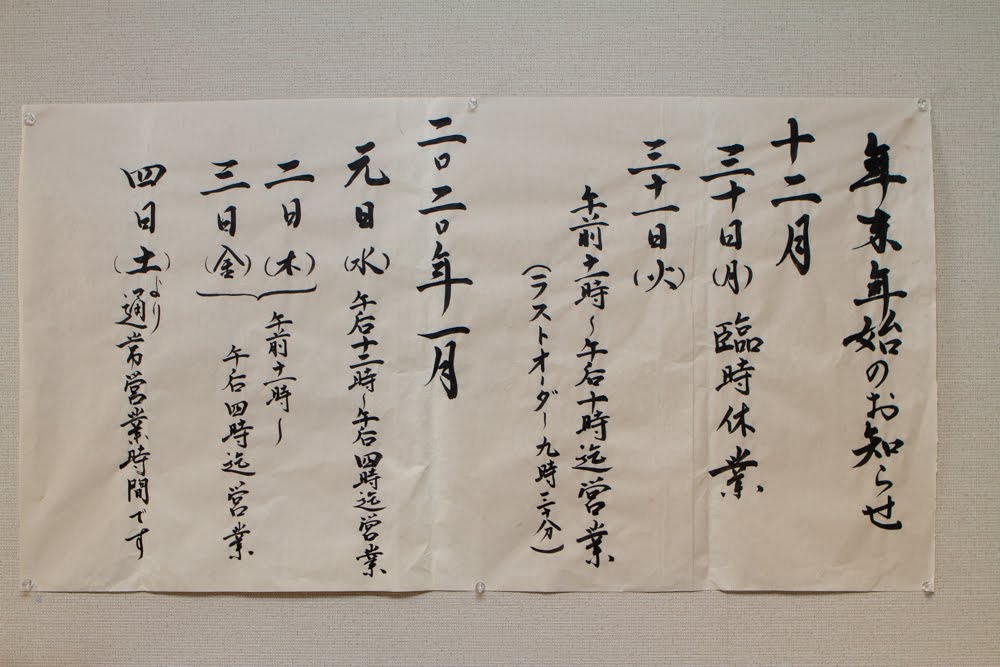 年末年始のお知らせ
十二月
三十日(月) 臨時休業
三十一日(火)
午前十一時~午后十時迄営業
(ラストオーダー九時三十分)
二〇二〇年一月
元日(水) 午后十二時~午后四時迄営業
二日(木)
三日(金)
午前十一時~
午后四時迄営業
四日(土)より通常営業時間です